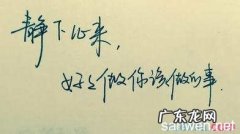 静下心来，
好好做你该做的事.
广东龙网
sanwen.net